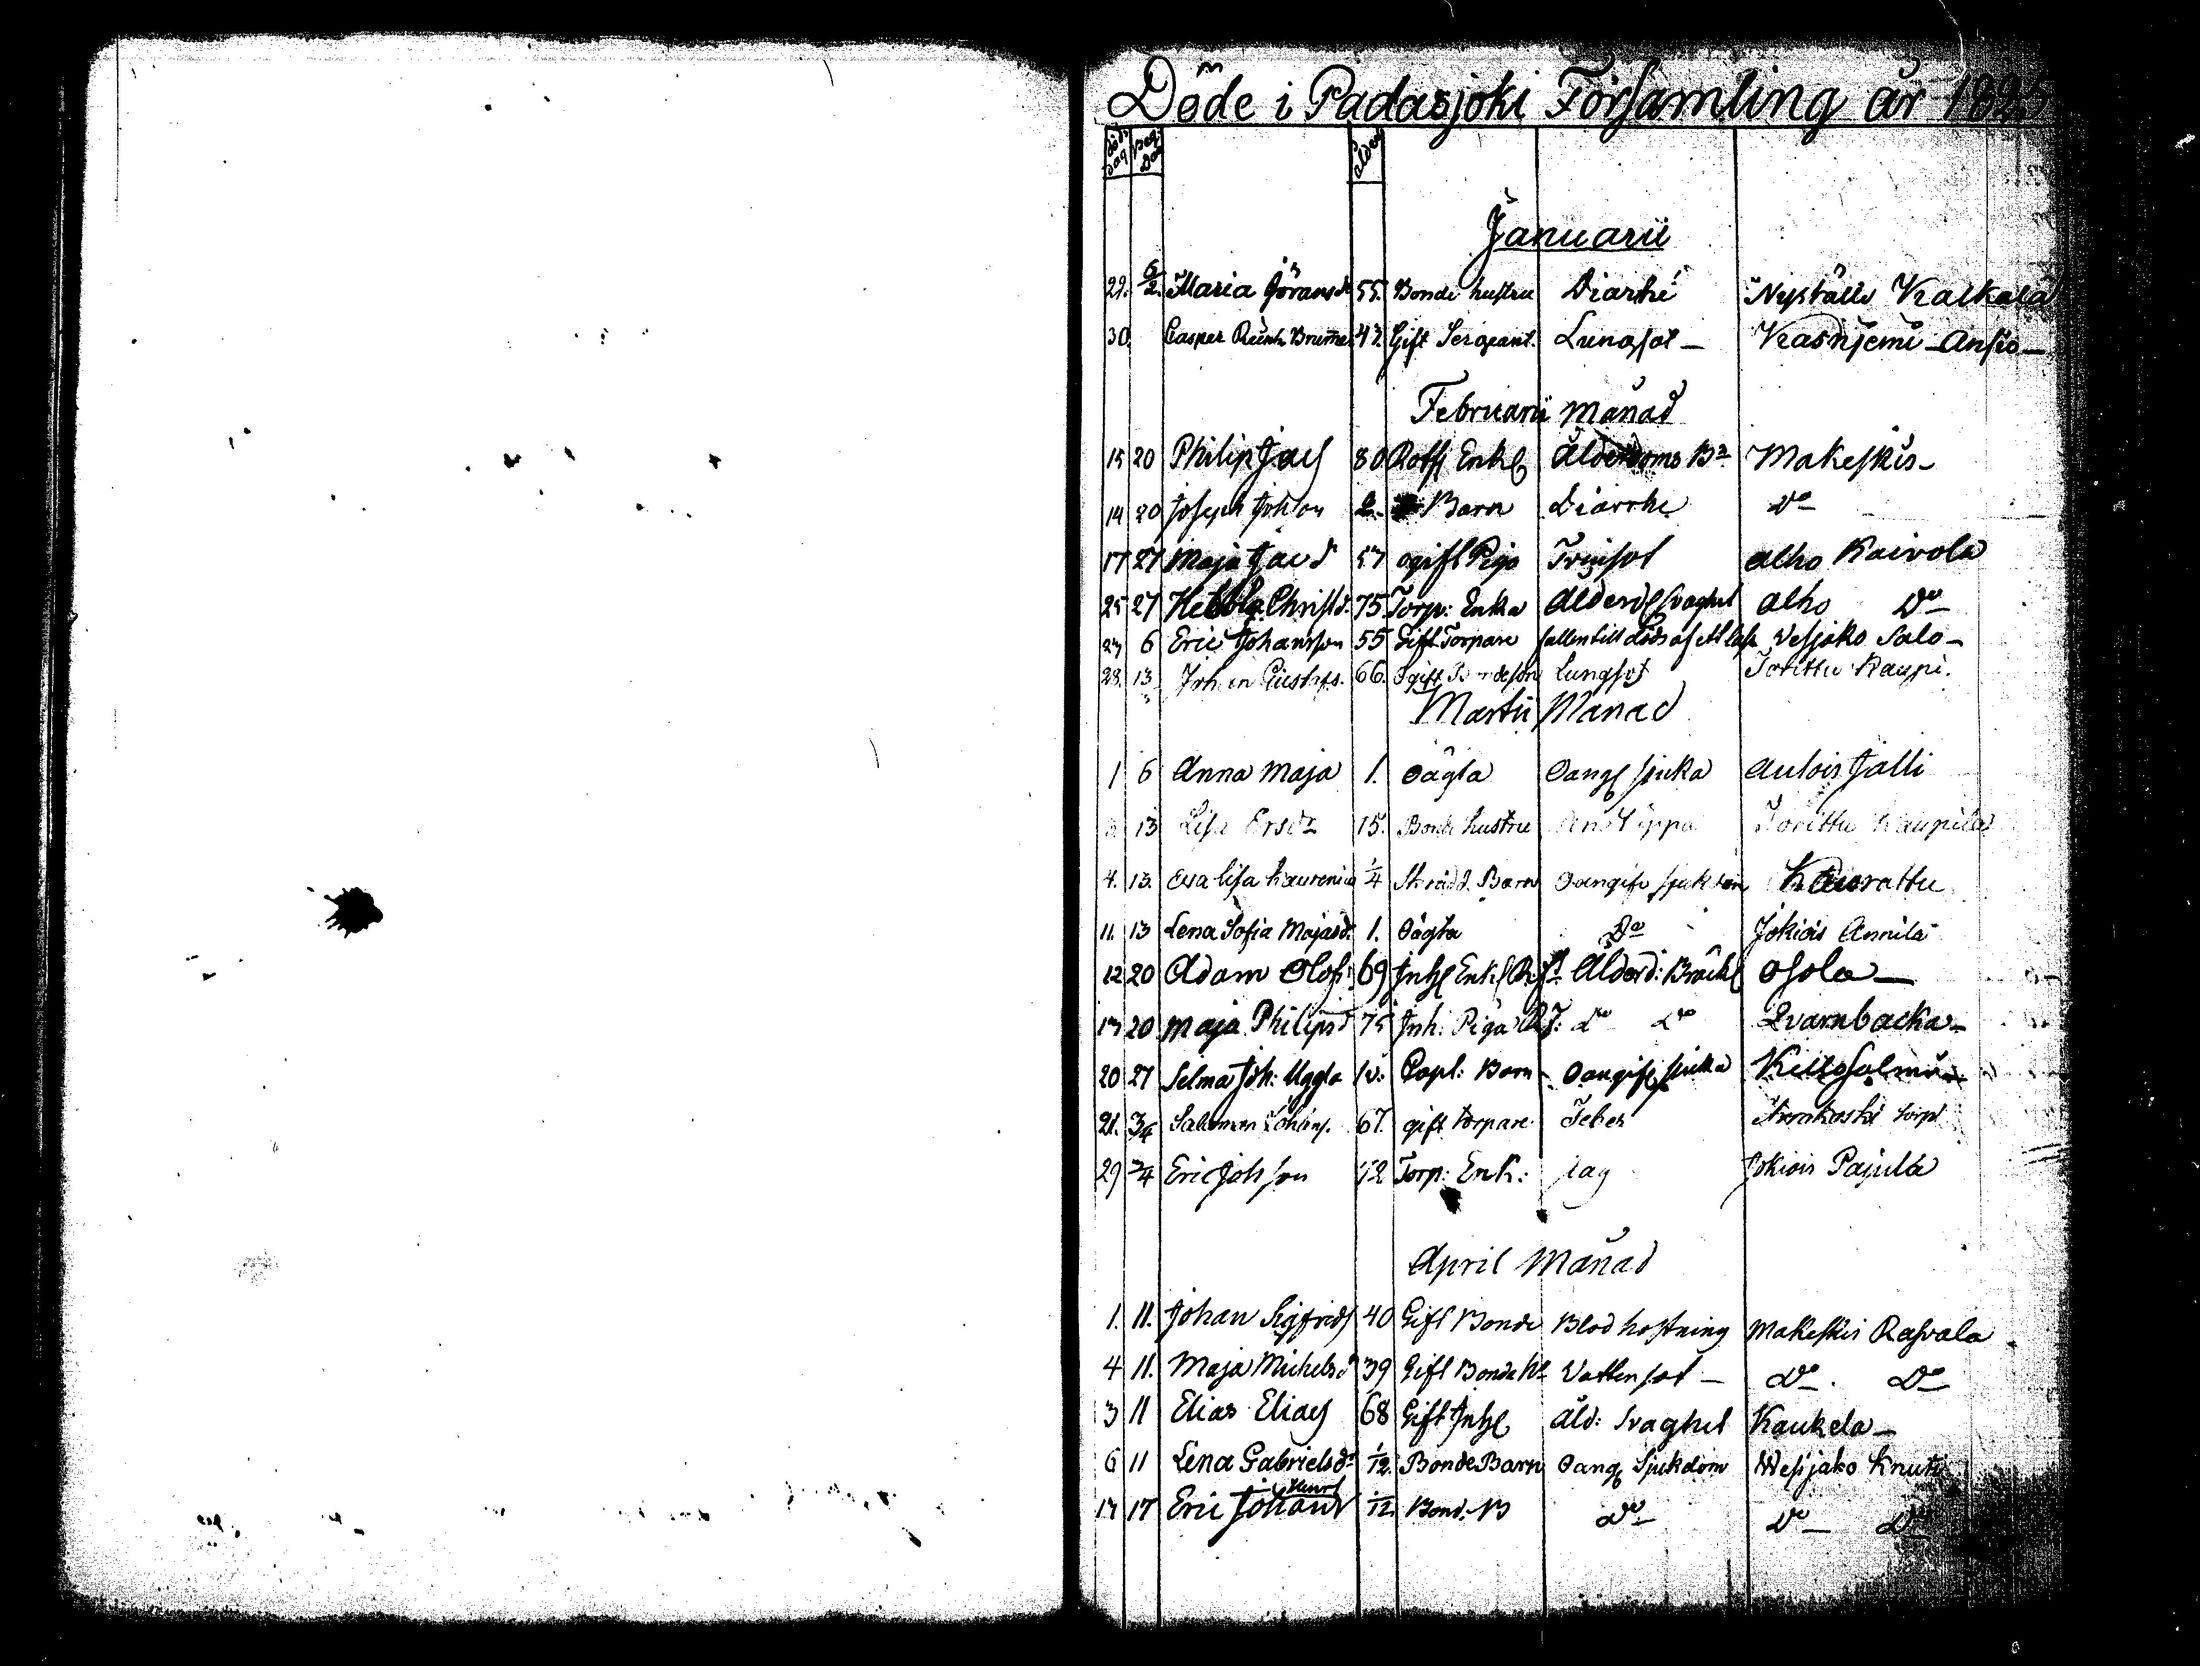 Döde i Padasjoki Församling år 1825
död dag Beg: Dag ålder
Januarii
29. 6/2. Maria Göransdr 55. Bonde hustru Diarhé Nystålä Kalkala
30. Casper Brumer 43. Gift Sergeant. Lungsot - Kasnjemi - Ansio -
Februarii Månad
15 20 Philip Jacs 80 Enkl Ålderdoms Br Makeskis -
14 20 Joseph Johson 2. Barn Diarrhe Do
17 27 Maja Jacd 57 ogift Piga Tvinsot Alho Kaivola
25 27 Christd. 75 Torp: Enka Alderds svaghet Alho Do
27 6 Eric Johansson 55 Gift Torpare fallen till Döds af Wesjako Salo -
28. 13 Johan Gustafs. 66. Ogift Bondeson lungsot Torittu Kaupi.
Martii Månad
1 6 Anna Maja 1. Oägta Oang sjuka Aulois Jälli
13 Lisa Ersdr 15. Bonde hustru Torittu Kaupila
4. 13. Eva Lisa Laurenc 1/4 Skrädd. Barn Oangifv sjukdom
11. 13 Lena Sofia Majasd. 1. Oägta Do Jokiois Annila
12 20 Adam Olofs 69 Inhs Enkl Ålderd: Bräckl Osola -
17 20 Maja Philipsd 75 Inh: Piga Do Do Qvarnbacka -
20 27 Selma Joh: Uggla Capl: Barn Oangifv sjuka Kellosalmi
21. 3/4 Salomon 67. gift torpare Feber torp
29 3/4 Eric Johsson 52 Torp: Enk: Jokiois Pajula
April Månad
1. 11. Johan Sigfrids 40 Gift Bonde Blod hostning Makeskis Rasvala
4 11. Maja Michelsd 39 Gift Bonde Hu Vattensot - Do. Do
3 11 Elias Elias 68 Gift Inhs Åld: Svaghet Kaukela -
6 11 Lena Gabrielsdr 1/12. Bonde Barn Oang Sjukdom Wesjako Knuti
Henrs
17 17 Eric Johans 1/12. Bond. B Do Do Do